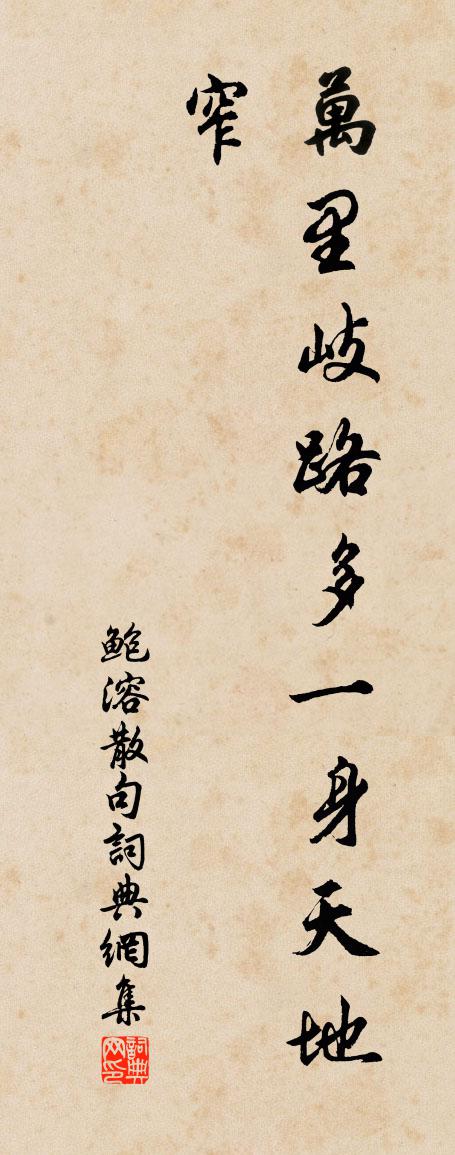 萬里歧路多一身天地
窄
鲍溶散句詞典網集
詞典
网印